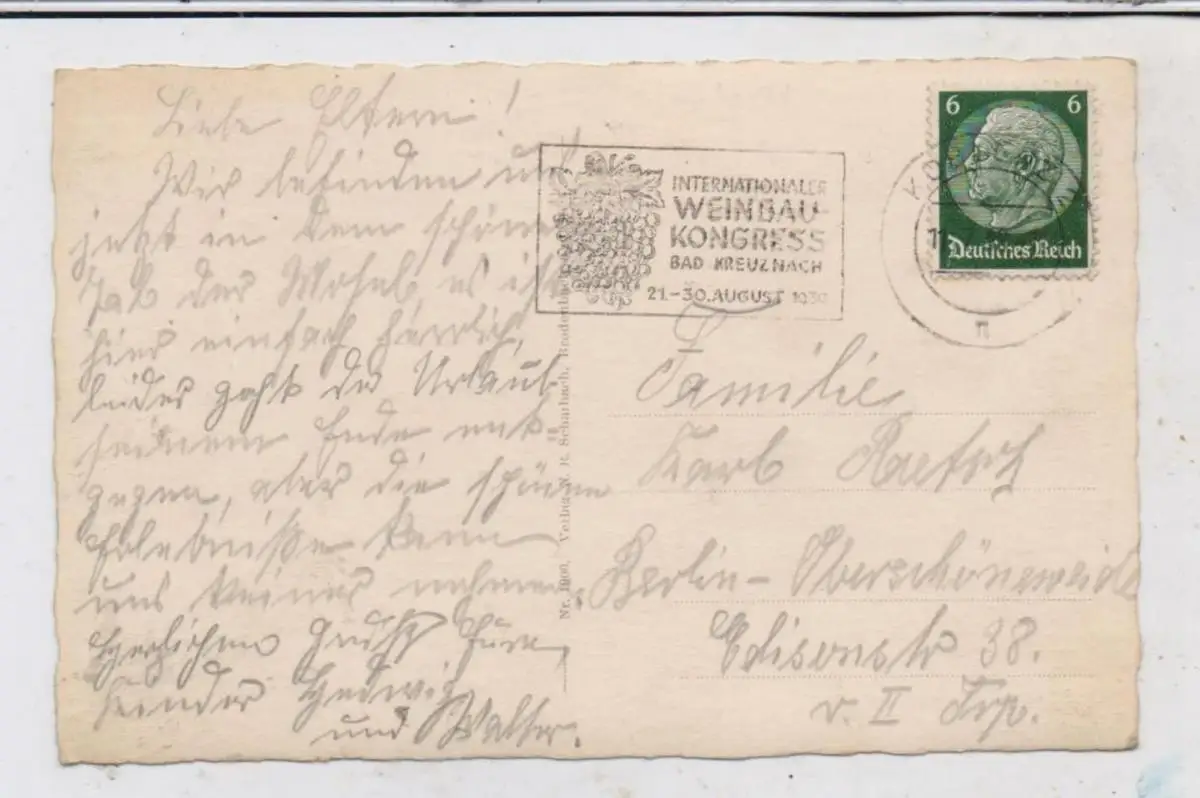 Liebe Eltern!
Wir befinden uns
jetzt in dem schönen
Tal der Mosel es ist
hier einfach herrlich,
leider geht der Urlaub
seinem Ende ent-
gegen, aber die schönen
Erlebniße kann
uns keiner nehmen.
Herzlichen Gruß Eure
Kinder Hedwig
und Walter.
Nr. 1900. Verlag R. Scharbach,
INTERNATIONALER
WEINBAU-
KONGRESS
BAD KREUZNACH
21.-30. AUGUST 1939
6 6
Deutsches Reich
n
Familie
Karl
Berlin-Oberschöneweide
Edisonstr 38.
v. II Trp.